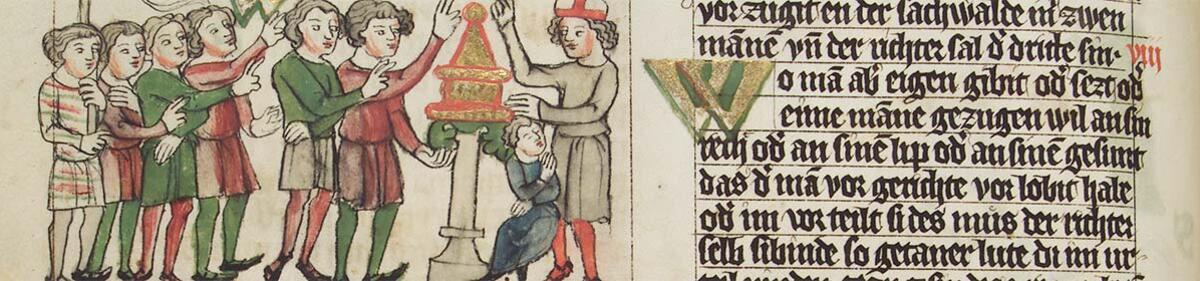 vor zugit en der sachwalde in zwen
māne vn̄ der richter sal d̄ dritte sin· viij
Wo mā ab̄ eigen gibit od̄ sezt od̄
eime māne gezugen wil an sin
rech od̄ an sinē lip od̄ an sinē gesunt
das d̄ mā vor gerichte vor lobit hale
od̄ im vor teilt si des mus der richter
selb sibinde so getaner lute di im ur